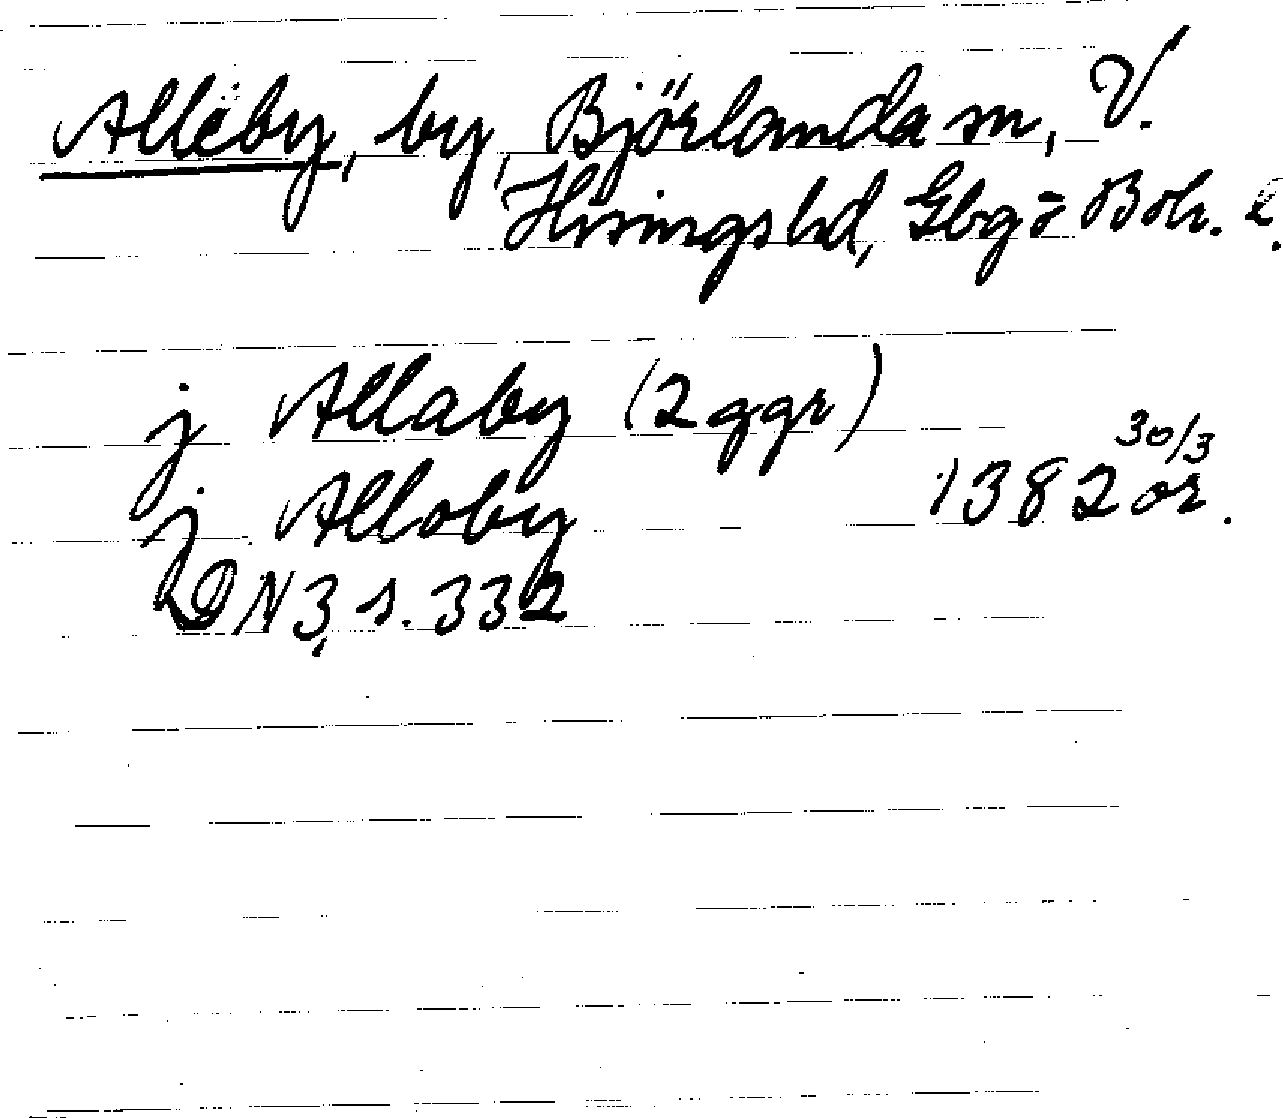 Alleby, by, Björlanda sn, V.
Hisings hd, Gbg o Boh. l.
j Allaby (2 ggr)
j Alloby 1382 30/3 or.
DN 3, s. 332